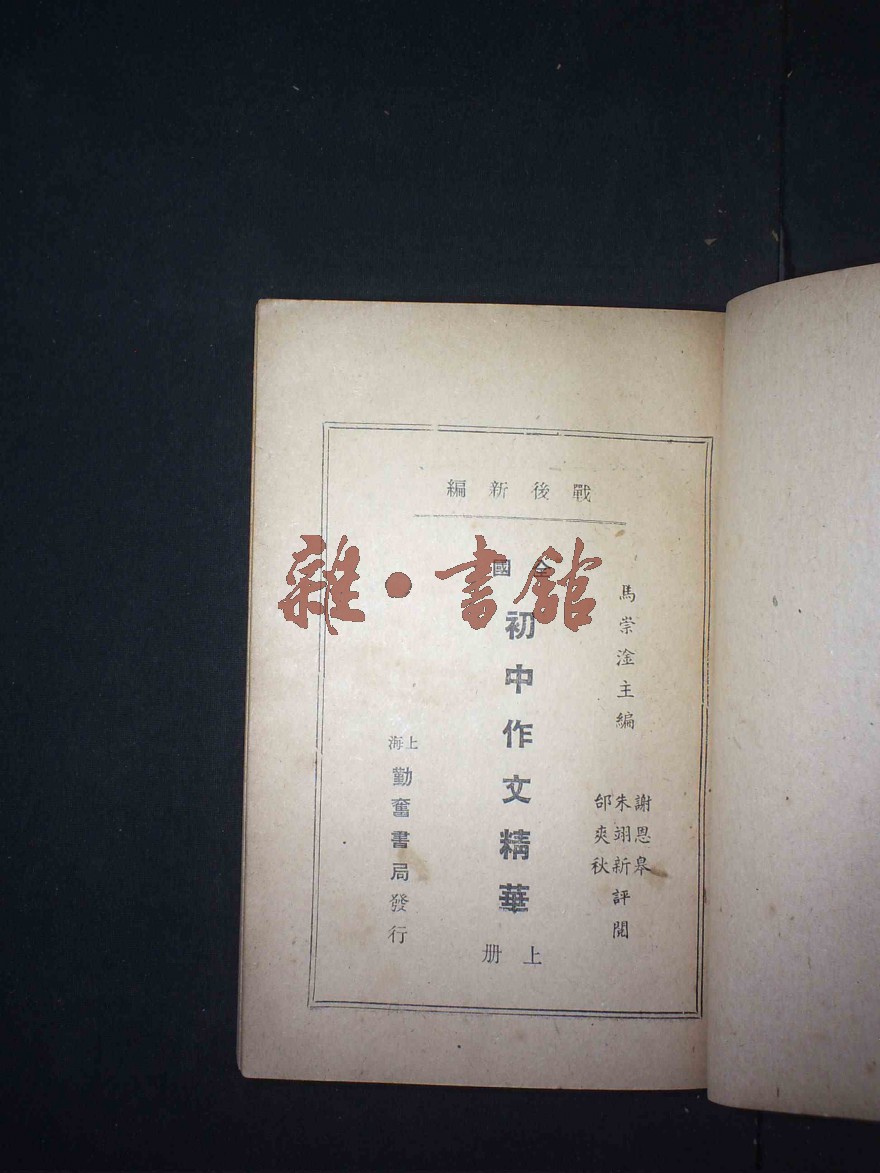 戰後新編
馬崇淦主編
謝恩皋
朱翊新評閱
邰爽秋
全國
初中作文精華
上册
上海
勤奮書局發行
雜·書館